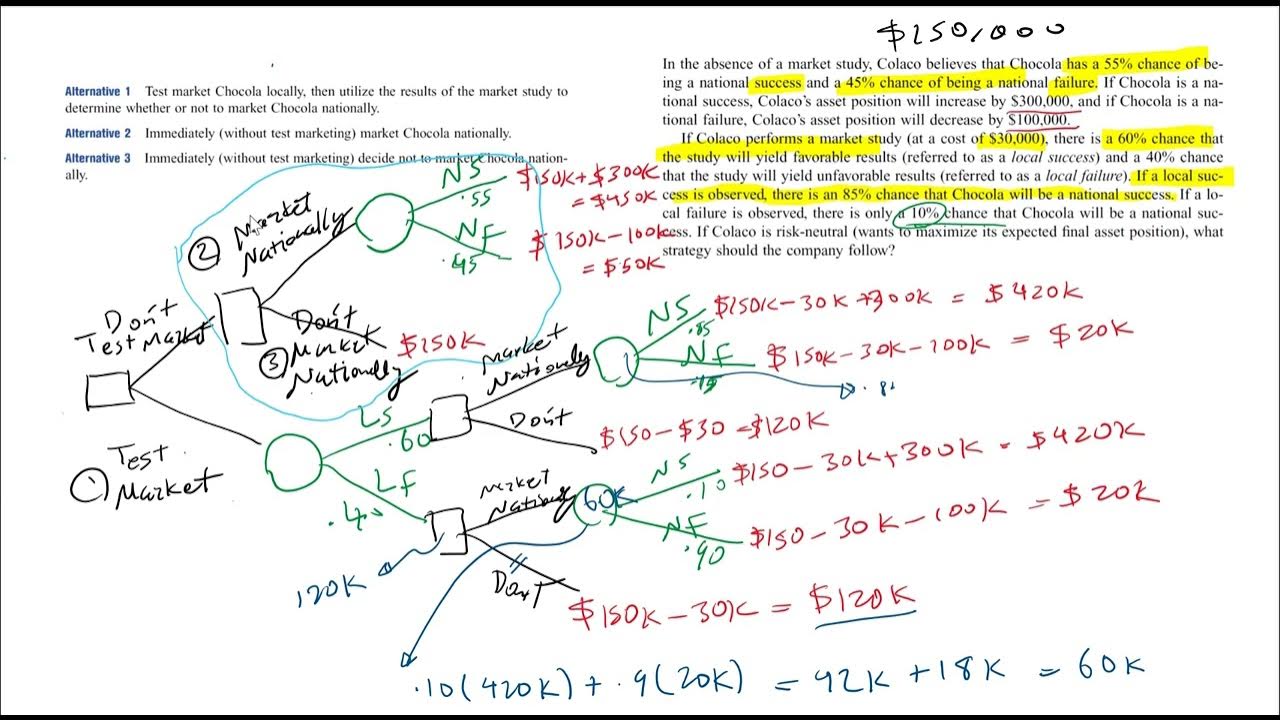 $150,000
Alternative 1 Test market Chocola locally, then utilize the results of the market study to
determine whether or not to market Chocola nationally.
Alternative 2 Immediately (without test marketing) market Chocola nationally.
Alternative 3 Immediately (without test marketing) decide not to market Chocola nation-
ally.
In the absence of a market study, Colaco believes that Chocola has a 55% chance of be-
ing a national success and a 45% chance of being a national failure. If Chocola is a na-
tional success, Colaco's asset position will increase by $300,000, and if Chocola is a na-
tional failure, Colaco's asset position will decrease by $100,000.
If Colaco performs a market study (at a cost of $30,000), there is a 60% chance that
the study will yield favorable results (referred to as a local success) and a 40% chance
that the study will yield unfavorable results (referred to as a local failure). If a local suc-
cess is observed, there is an 85% chance that Chocola will be a national success. If a lo-
cal failure is observed, there is only a 10% chance that Chocola will be a national suc-
cess. If Colaco is risk-neutral (wants to maximize its expected final asset position), what
strategy should the company follow?
NS
.55
$150K+$300K
= $450K
② Market
Nationally
NF
.45
$150K-100K
= $50K
Don't
Test Market
Don't
③ Market
Nationally
$150K
Market
Nationally
NS
.85
$150K-30K+300K = $420K
NF
.15
$150K-30K-100K = $20K
.8
LS
.60
Don't
$150-$30 = $120K
Test
① Market
LF
.40
Market
Nationally
60K
NS
.10
$150-30K+300K = $420K
NF
.90
$150-30K-100K = $20K
120K
Don't
$150K-30K = $120K
.10(420K) + .9(20K) = 42K + 18K = 60K